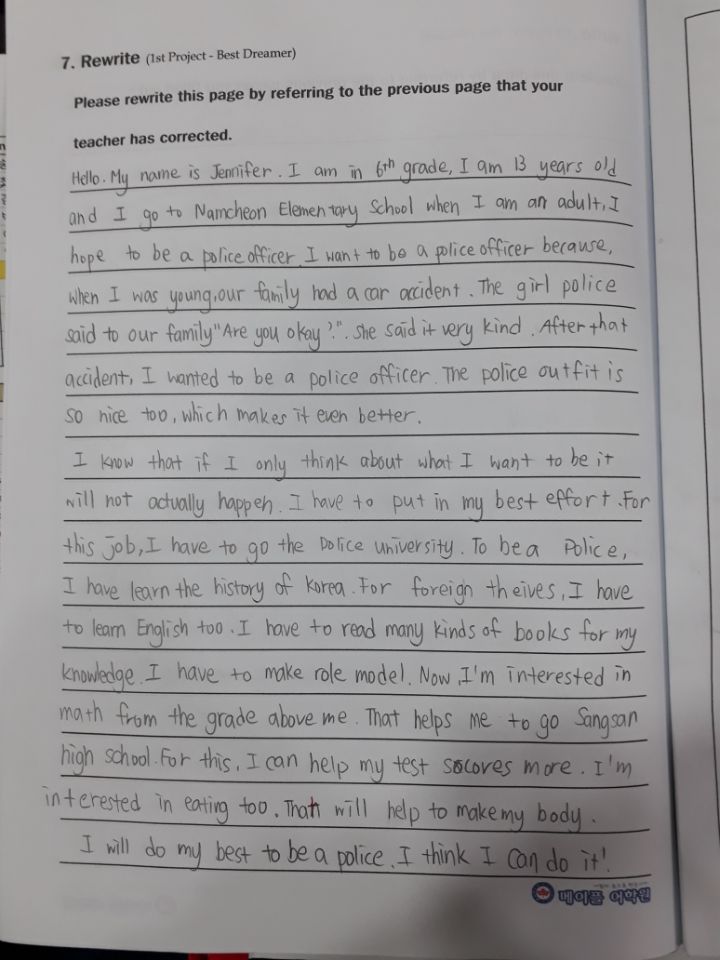 7. Rewrite (1st Project - Best Dreamer)
Please rewrite this page by referring to the previous page that your
teacher has corrected.
Hello. My name is Jennifer. I am in 6th grade, I am 13 years old
and I go to Namcheon Elementary School when I am an adult, I
hope to be a police officer. I want to be a police officer because,
when I was young, our family had a car accident. The girl police
said to our family "Are you okay?". She said it very kind. After that
accident, I wanted to be a police officer. The police outfit is
so nice too, which makes it even better.
I know that if I only think about what I want to be it
will not actually happen. I have to put in my best effort. For
this job, I have to go the police university. To be a Police,
I have learn the history of Korea. For foreign theives, I have
to learn English too. I have to read many kinds of books for my
knowledge. I have to make role model. Now, I'm interested in
math from the grade above me. That helps me to go Sangsan
high school. For this, I can help my test scores more. I'm
interested in eating too. That will help to make my body.
I will do my best to be a police. I think I can do it!
메이플 어학원